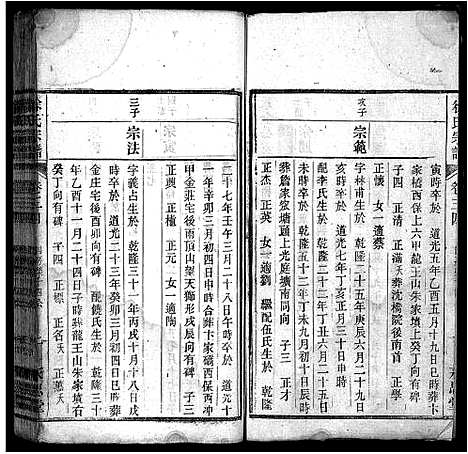 徐氏宗譜
卷三四
寅時卒於 道光五年乙酉五月十九日巳時葬
家橋西保上六甲龍王山朱家墳上癸丁向有碑
子四 正清 正滿夭葬沈橋院後南首 正學
正懷 女一適蔡
次子 宗範
字 生於 乾隆二十五年庚辰六月二十九日
亥時卒於 道光七年丁亥正月三十日申時
配李氏生於 乾隆二十二年丁丑六月二十
未時卒於 道光二十二年丁丑九月初十日辰時
葬詹家窑塘蹟上光庭壙南同向 子三 正才
正杰 正英 女一適劉 繼配伍氏生於 乾隆
二十七年壬午三月二十八日午時卒於 道光十
一年辛卯三月初四日申時合葬卞家磯西保丙冲
甲金莊宅後雨頂山葉天獅形戌辰向有碑 子三
正興 正權 正元 女一適陶
三子 宗法
字義占生於 乾隆三十一年丙戌十月十八日戌
時卒於 道光二十三年癸卯三月初四日巳時葬
金庄宅後酉卯向有碑 配饒氏生於 乾隆三十
年乙酉十一月二十四日子時葬龍王山朱家墳右
癸丁向有碑 子四 正標 正名夭 正萬夭
徐氏宗譜
卷三十四